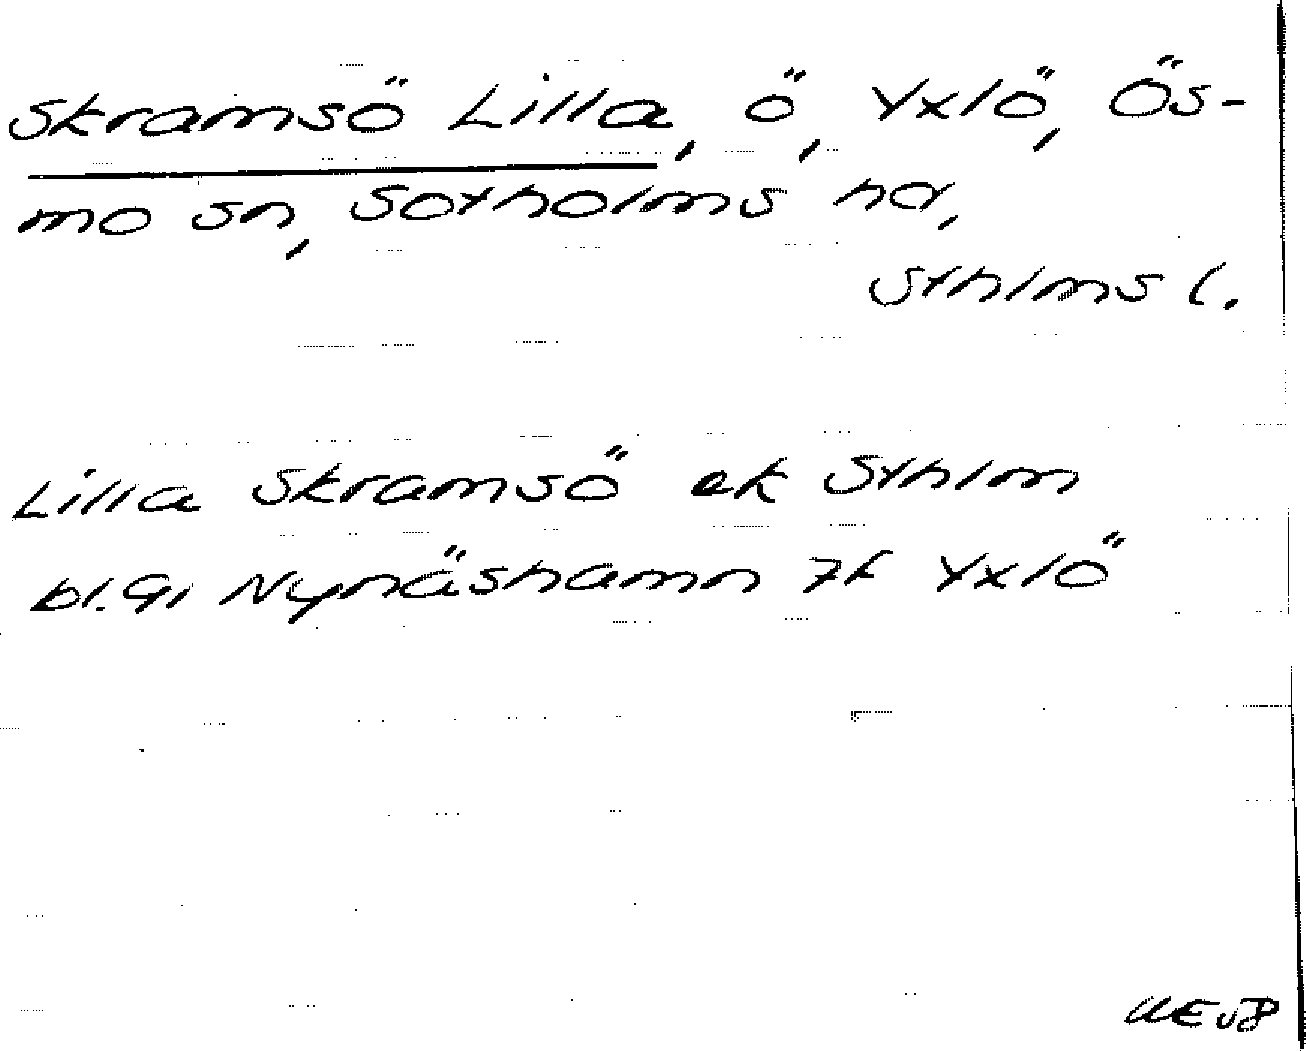 Skramsö Lilla, ö, Yxlö, Ös-
mo sn, Sotholms hd,
Sthlms l.
Lilla Skramsö ek Sthlm
bl. 91 Nynäshamn 7f Yxlö